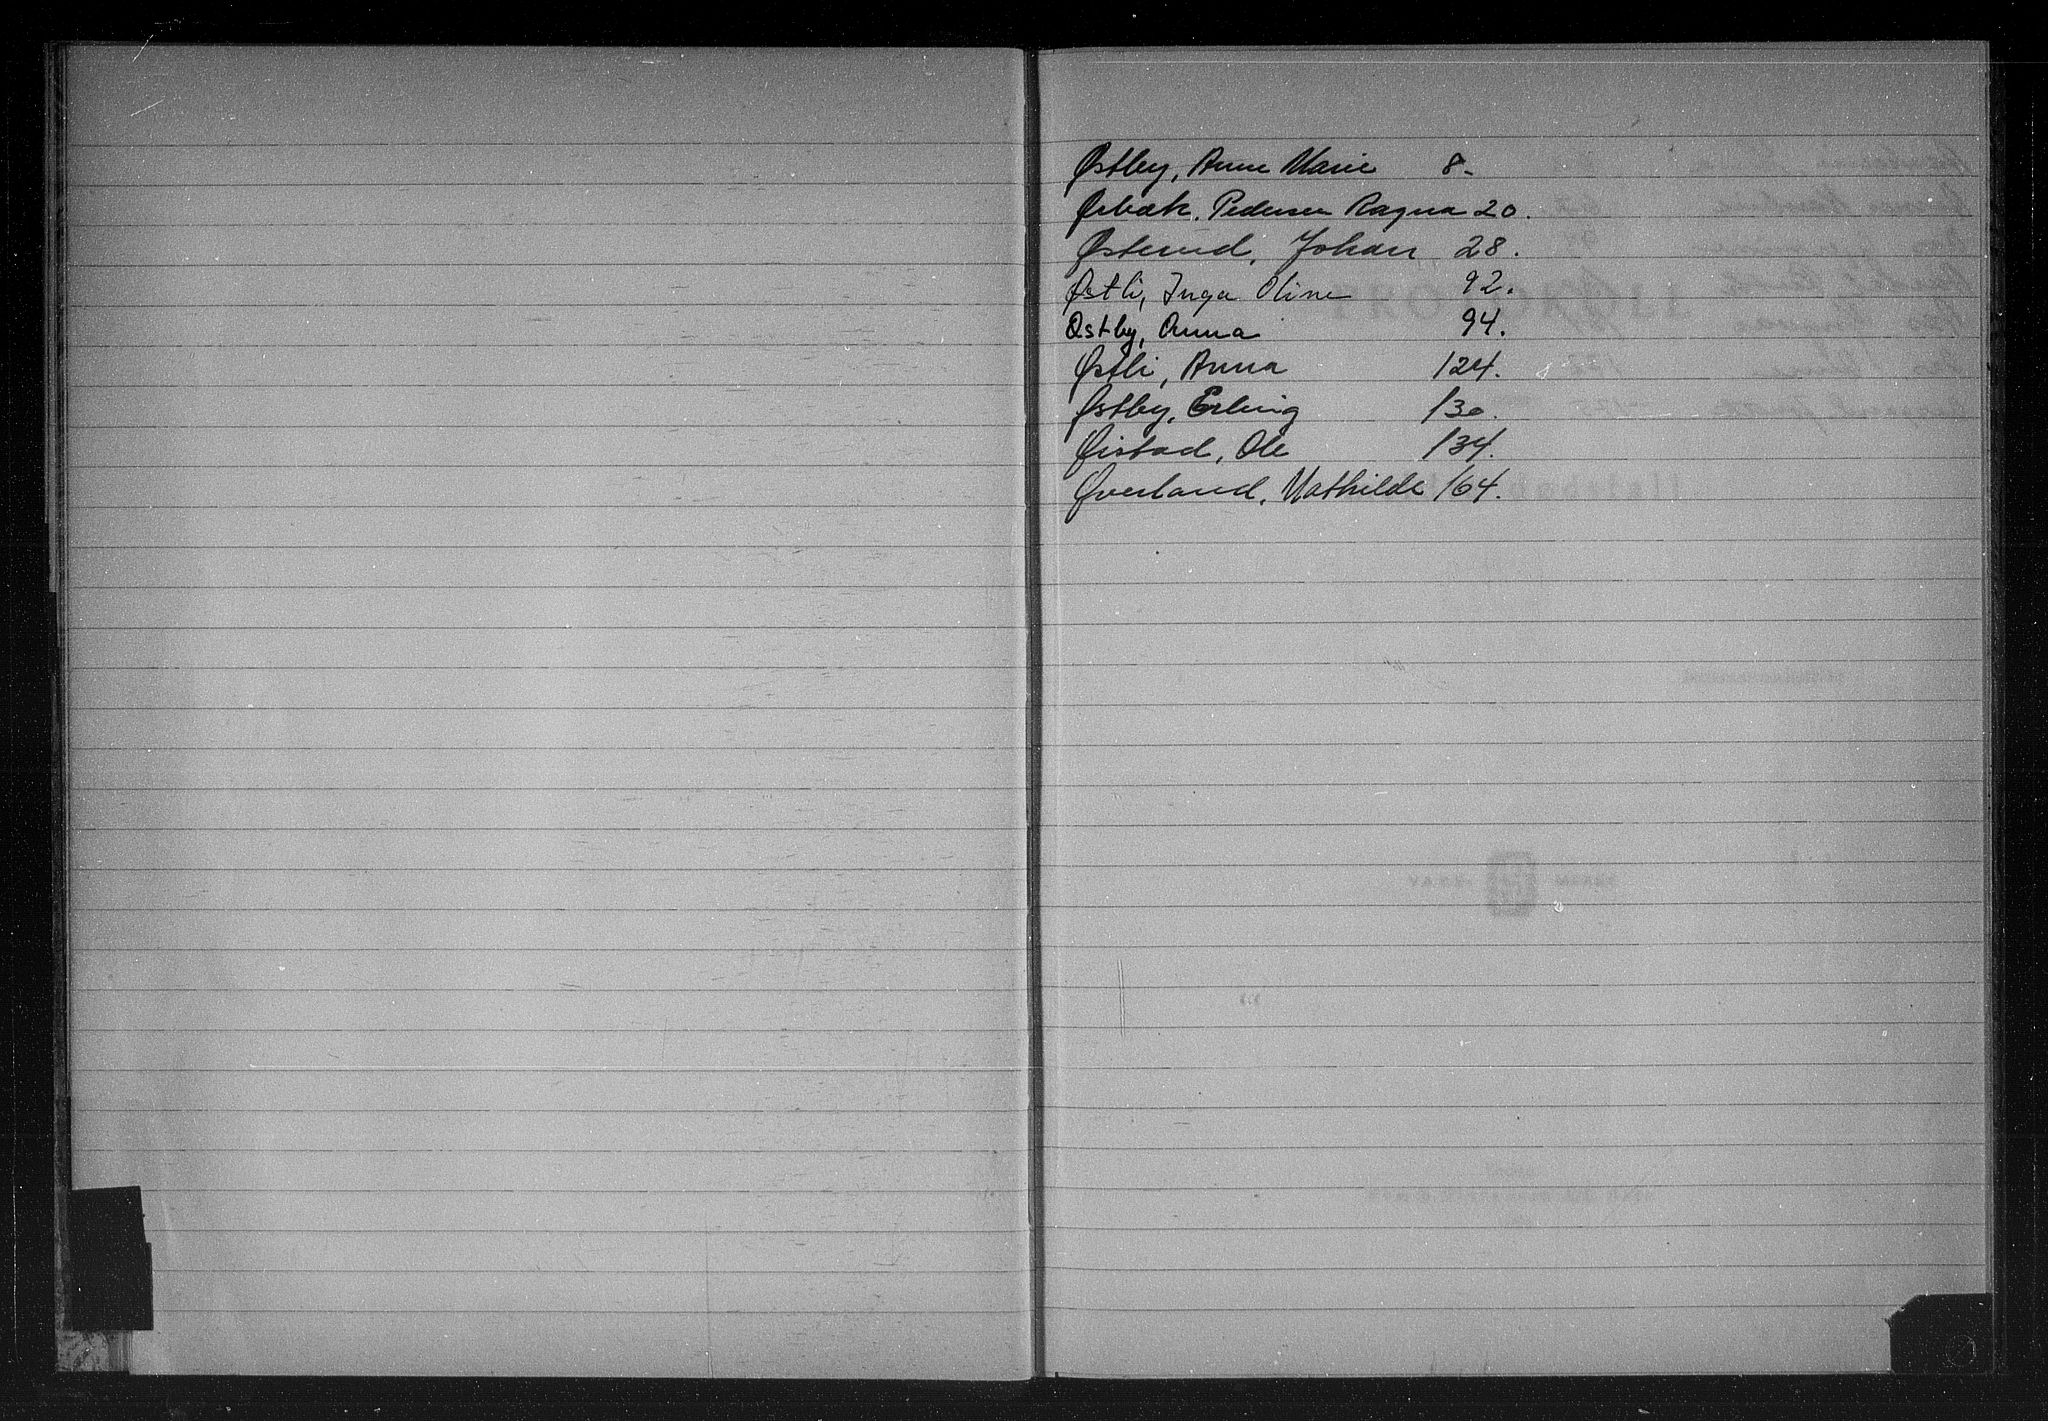 Østby, Anne Marie 8.
Ørbæk, Pedersen Ragna 20.
Østerud, Johan 28.
Østli, Inga Oline 92.
Østby, Anna 94.
Østli, Anna 124.
Østby, Erling 130.
Øistad, Ole 134.
Øverland, Mathilde 164.